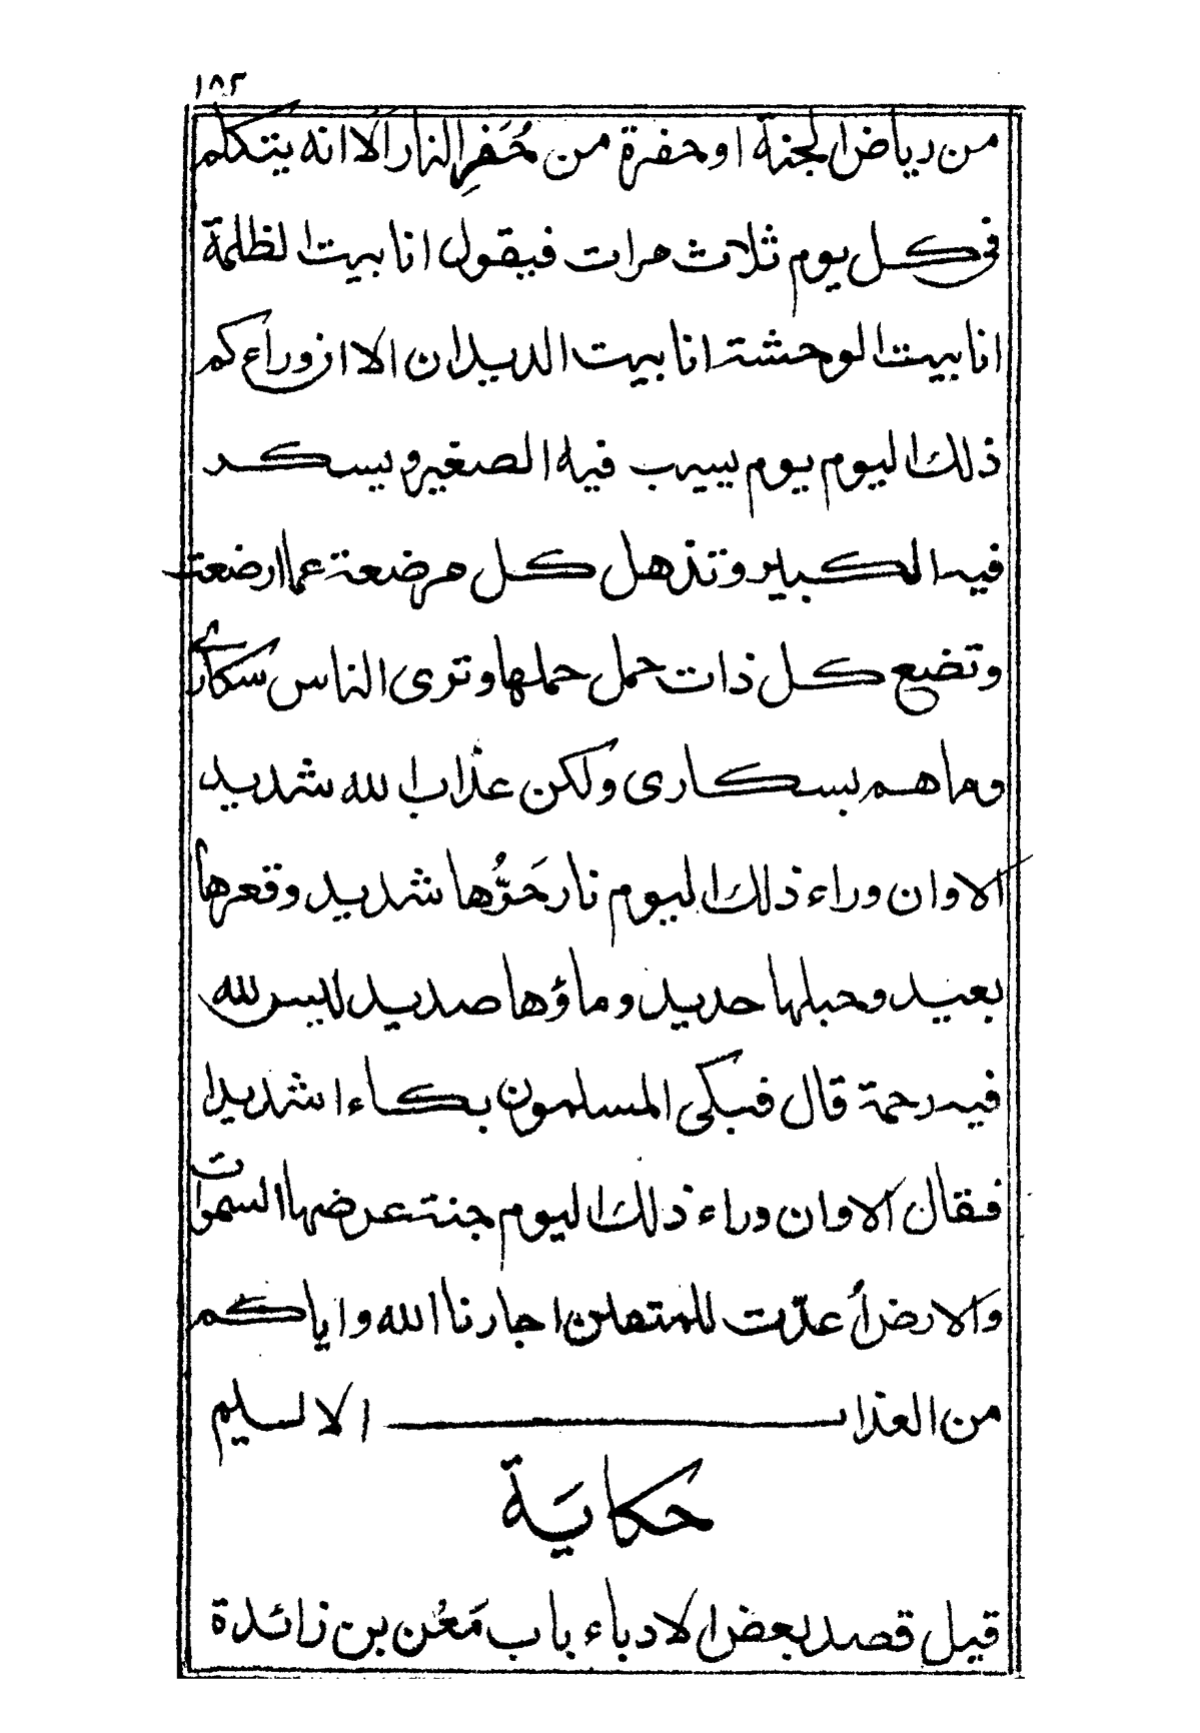 ١٨٢
من رياض الجنة او حفرة من حُفَرِ النار الا انه يتكلم
فى كل يوم ثلاث مرات فيقول انا بيت الظلمة
انا بيت الوحشة انا بيت الديدان الا ان وراءكم
ذلك اليوم يوم يسيب فيه الصغير ويسكر
فيه الكبير وتذهل كل مرضعة عما ارضعت
وتضع كل ذات حمل حملها وترى الناس سكارى
وما هم بسكارى ولكن عذاب الله شديد
الا وان وراء ذلك اليوم نار حَرُّها شديد وقعرها
بعيد وحبلها حديد وماؤها صديد ليس لله
فيه رحمة قال فبكى المسلمون بكاء اشديدا
فقال الا وان وراء ذلك اليوم جنة عرضها السموات
والارض أعدّت للمتقين اجارنا الله واياكم
من العذاب الاليم
حكايَة
قيل قصد بعض الادباء باب مَعْن بن زائدة